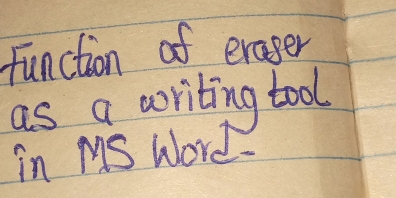 Function of eraser
as a writing tool
in MS Word.